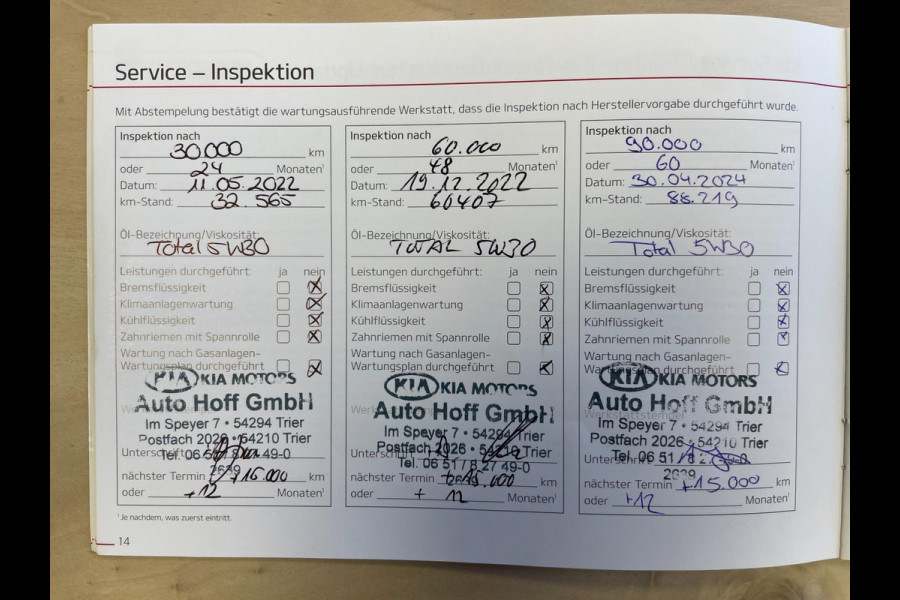 Service – Inspektion
Mit Abstempelung bestätigt die wartungsausführende Werkstatt, dass die Inspektion nach Herstellervorgabe durchgeführt wurde.
Inspektion nach
30000 km
oder 24 Monaten¹
Datum: 11.05.2022
km-Stand: 32.565
Öl-Bezeichnung/Viskosität:
Total 5W30
Leistungen durchgeführt: ja nein
Bremsflüssigkeit
Klimaanlagenwartung
Kühlflüssigkeit
Zahnriemen mit Spannrolle
Wartung nach Gasanlagen-
Wartungsplan durchgeführt
KIA KIA MOTORS
Auto Hoff GmbH
Im Speyer 7 • 54294 Trier
Postfach 2026 • 54210 Trier
Tel. 06 51 / 8 27 49-0
Unterschrift
2639
nächster Termin +15.000 km
oder +12 Monaten¹
Inspektion nach
60.000 km
oder 48 Monaten¹
Datum: 19.12.2022
km-Stand: 60407
Öl-Bezeichnung/Viskosität:
TOTAL 5W30
Leistungen durchgeführt: ja nein
Bremsflüssigkeit
Klimaanlagenwartung
Kühlflüssigkeit
Zahnriemen mit Spannrolle
Wartung nach Gasanlagen-
Wartungsplan durchgeführt
KIA KIA MOTORS
Auto Hoff GmbH
Im Speyer 7 • 54294 Trier
Postfach 2026 • 54210 Trier
Unterschrift
Tel. 06 51 / 8 27 49-0
nächster Termin +15.000 km
oder + 12 Monaten¹
Inspektion nach
90.000 km
oder 60 Monaten¹
Datum: 30.04.2024
km-Stand: 88.219
Öl-Bezeichnung/Viskosität:
Total 5W30
Leistungen durchgeführt: ja nein
Bremsflüssigkeit
Klimaanlagenwartung
Kühlflüssigkeit
Zahnriemen mit Spannrolle
Wartung nach Gasanlagen-
Wartungsplan durchgeführt
KIA KIA MOTORS
Auto Hoff GmbH
Werkstattstempel
Im Speyer 7 • 54294 Trier
Postfach 2026 • 54210 Trier
Unterschrift Tel. 06 51 / 8 27 49-0
2639
nächster Termin +15.000 km
oder +12 Monaten¹
¹Je nachdem, was zuerst eintritt.
14